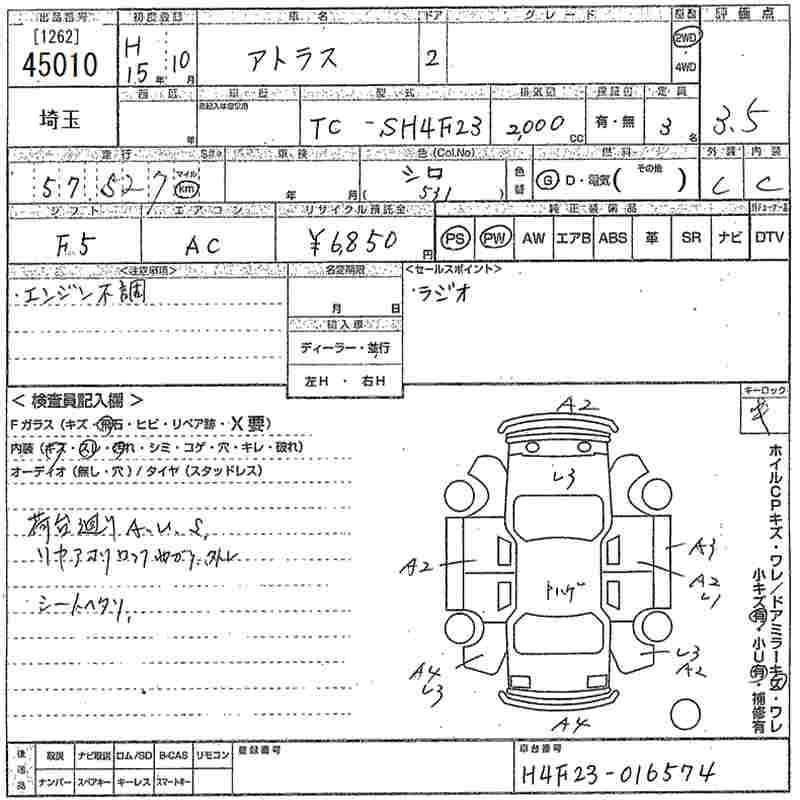 出品番号 初度登録 車名 ドア グレード 駆動 評価点
[1262]
45010
H 15年 10月
アトラス
2
2WD
4WD
3.5
埼玉
車歴 型式 排気量 保証書 定員
年
TC-SH4F23
2,000 cc
有・無
3名
走行 車検 色(Col.No) 燃料 外装 内装
57,527 マイル km
年 月
シロ
(531)
色替
G D・電気( その他 )
C C
シフト エアコン リサイクル預託金 純正装備品
F5
AC
¥6,850円
PS PW AW エアB ABS 革 SR ナビ DTV
<注意事項> 名変期限 <セールスポイント>
・エンジン不調
月 日
・ラジオ
輸入車
ディーラー・並行
左H ・ 右H
<検査員記入欄>
キーロック
Fガラス(キズ・飛石・ヒビ・リペア跡・X要)
内装(キズ・スレ・汚れ・シミ・コゲ・穴・キレ・破れ)
オーディオ(無し・穴)/タイヤ(スタッドレス)
荷台廻りA.U.S.
シートヘタリ,
A2
L3
A2
A3
A2
L1
A4
L3
L3
A2
A4
ホイルCPキズ・ワレ/ドアミラーキズ・ワレ
小キズ有・小U有・補修有
後送品
取説 ナビ取説 ロム/SD B-CAS リモコン
ナンバー スペアキー キーレス スマートキー
登録番号
車台番号
H4F23-016574